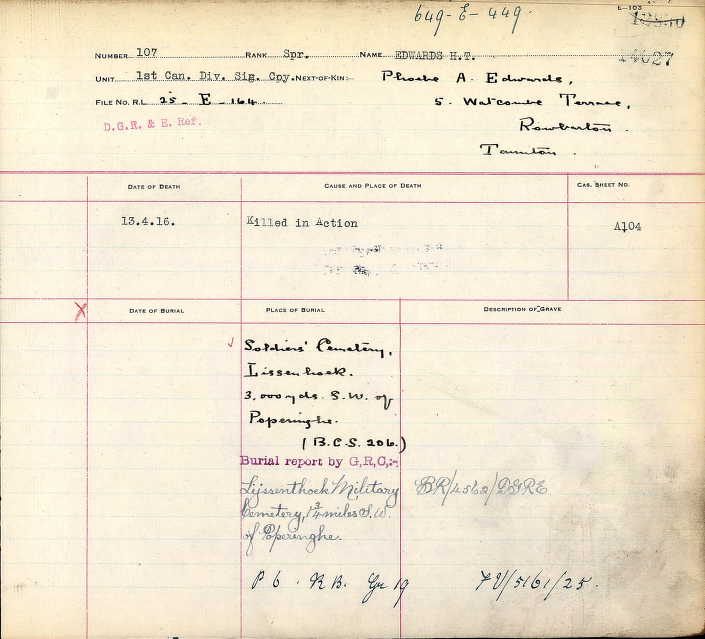 649-E-449.
E-103
NUMBER 107 RANK Spr. NAME EDWARDS H.T.
14627
UNIT 1st Can. Div. Sig. Cpy. NEXT-OF-KIN:- Phoebe A. Edwards,
FILE NO. R.L. 25-E-164. 5. Watcombe Terrace,
D.G.R. & E. Ref. Rowbarton.
Taunton.
DATE OF DEATH CAUSE AND PLACE OF DEATH CAS. SHEET NO.
13.4.16. Killed in Action A104
X DATE OF BURIAL PLACE OF BURIAL DESCRIPTION OF GRAVE
Soldiers' Cemetery,
Lissenhoek.
3,000 yds. S.W. of
Poperinghe.
(B.C.S. 206.)
Burial report by G,R,C,:-
Lijssenthoek Military BR/4562/DGRE
Cemetery, 1¾ miles S.W.
of Poperinghe.
P 6. R B. Gr 19 7V/5161/25.